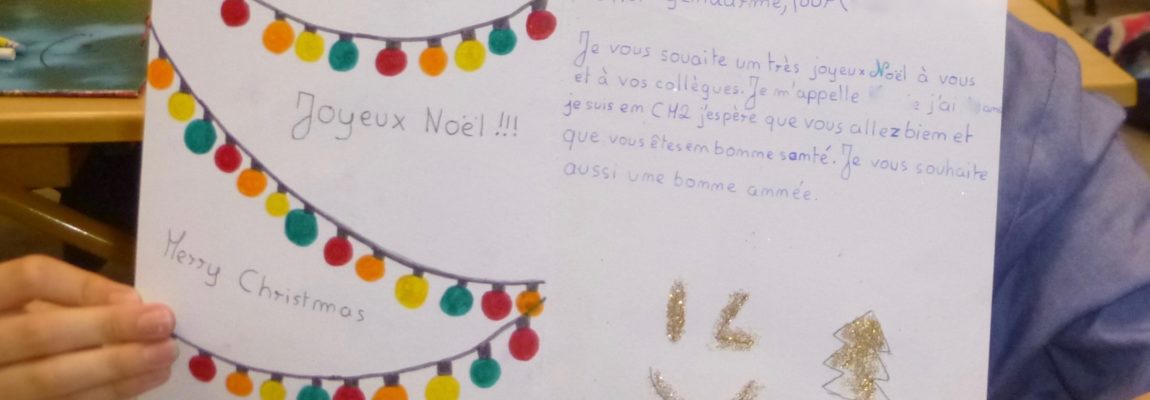 Joyeux Noël !!!
Merry Christmas
gendarme,
Je vous souaite um très joyeux Noël à vous
et à vos collègues. Je m'appelle j'ai
je suis em CM2 j'espère que vous allez biem et
que vous êtes em bomme samté. Je vous souhaite
aussi ume bomme ammée.